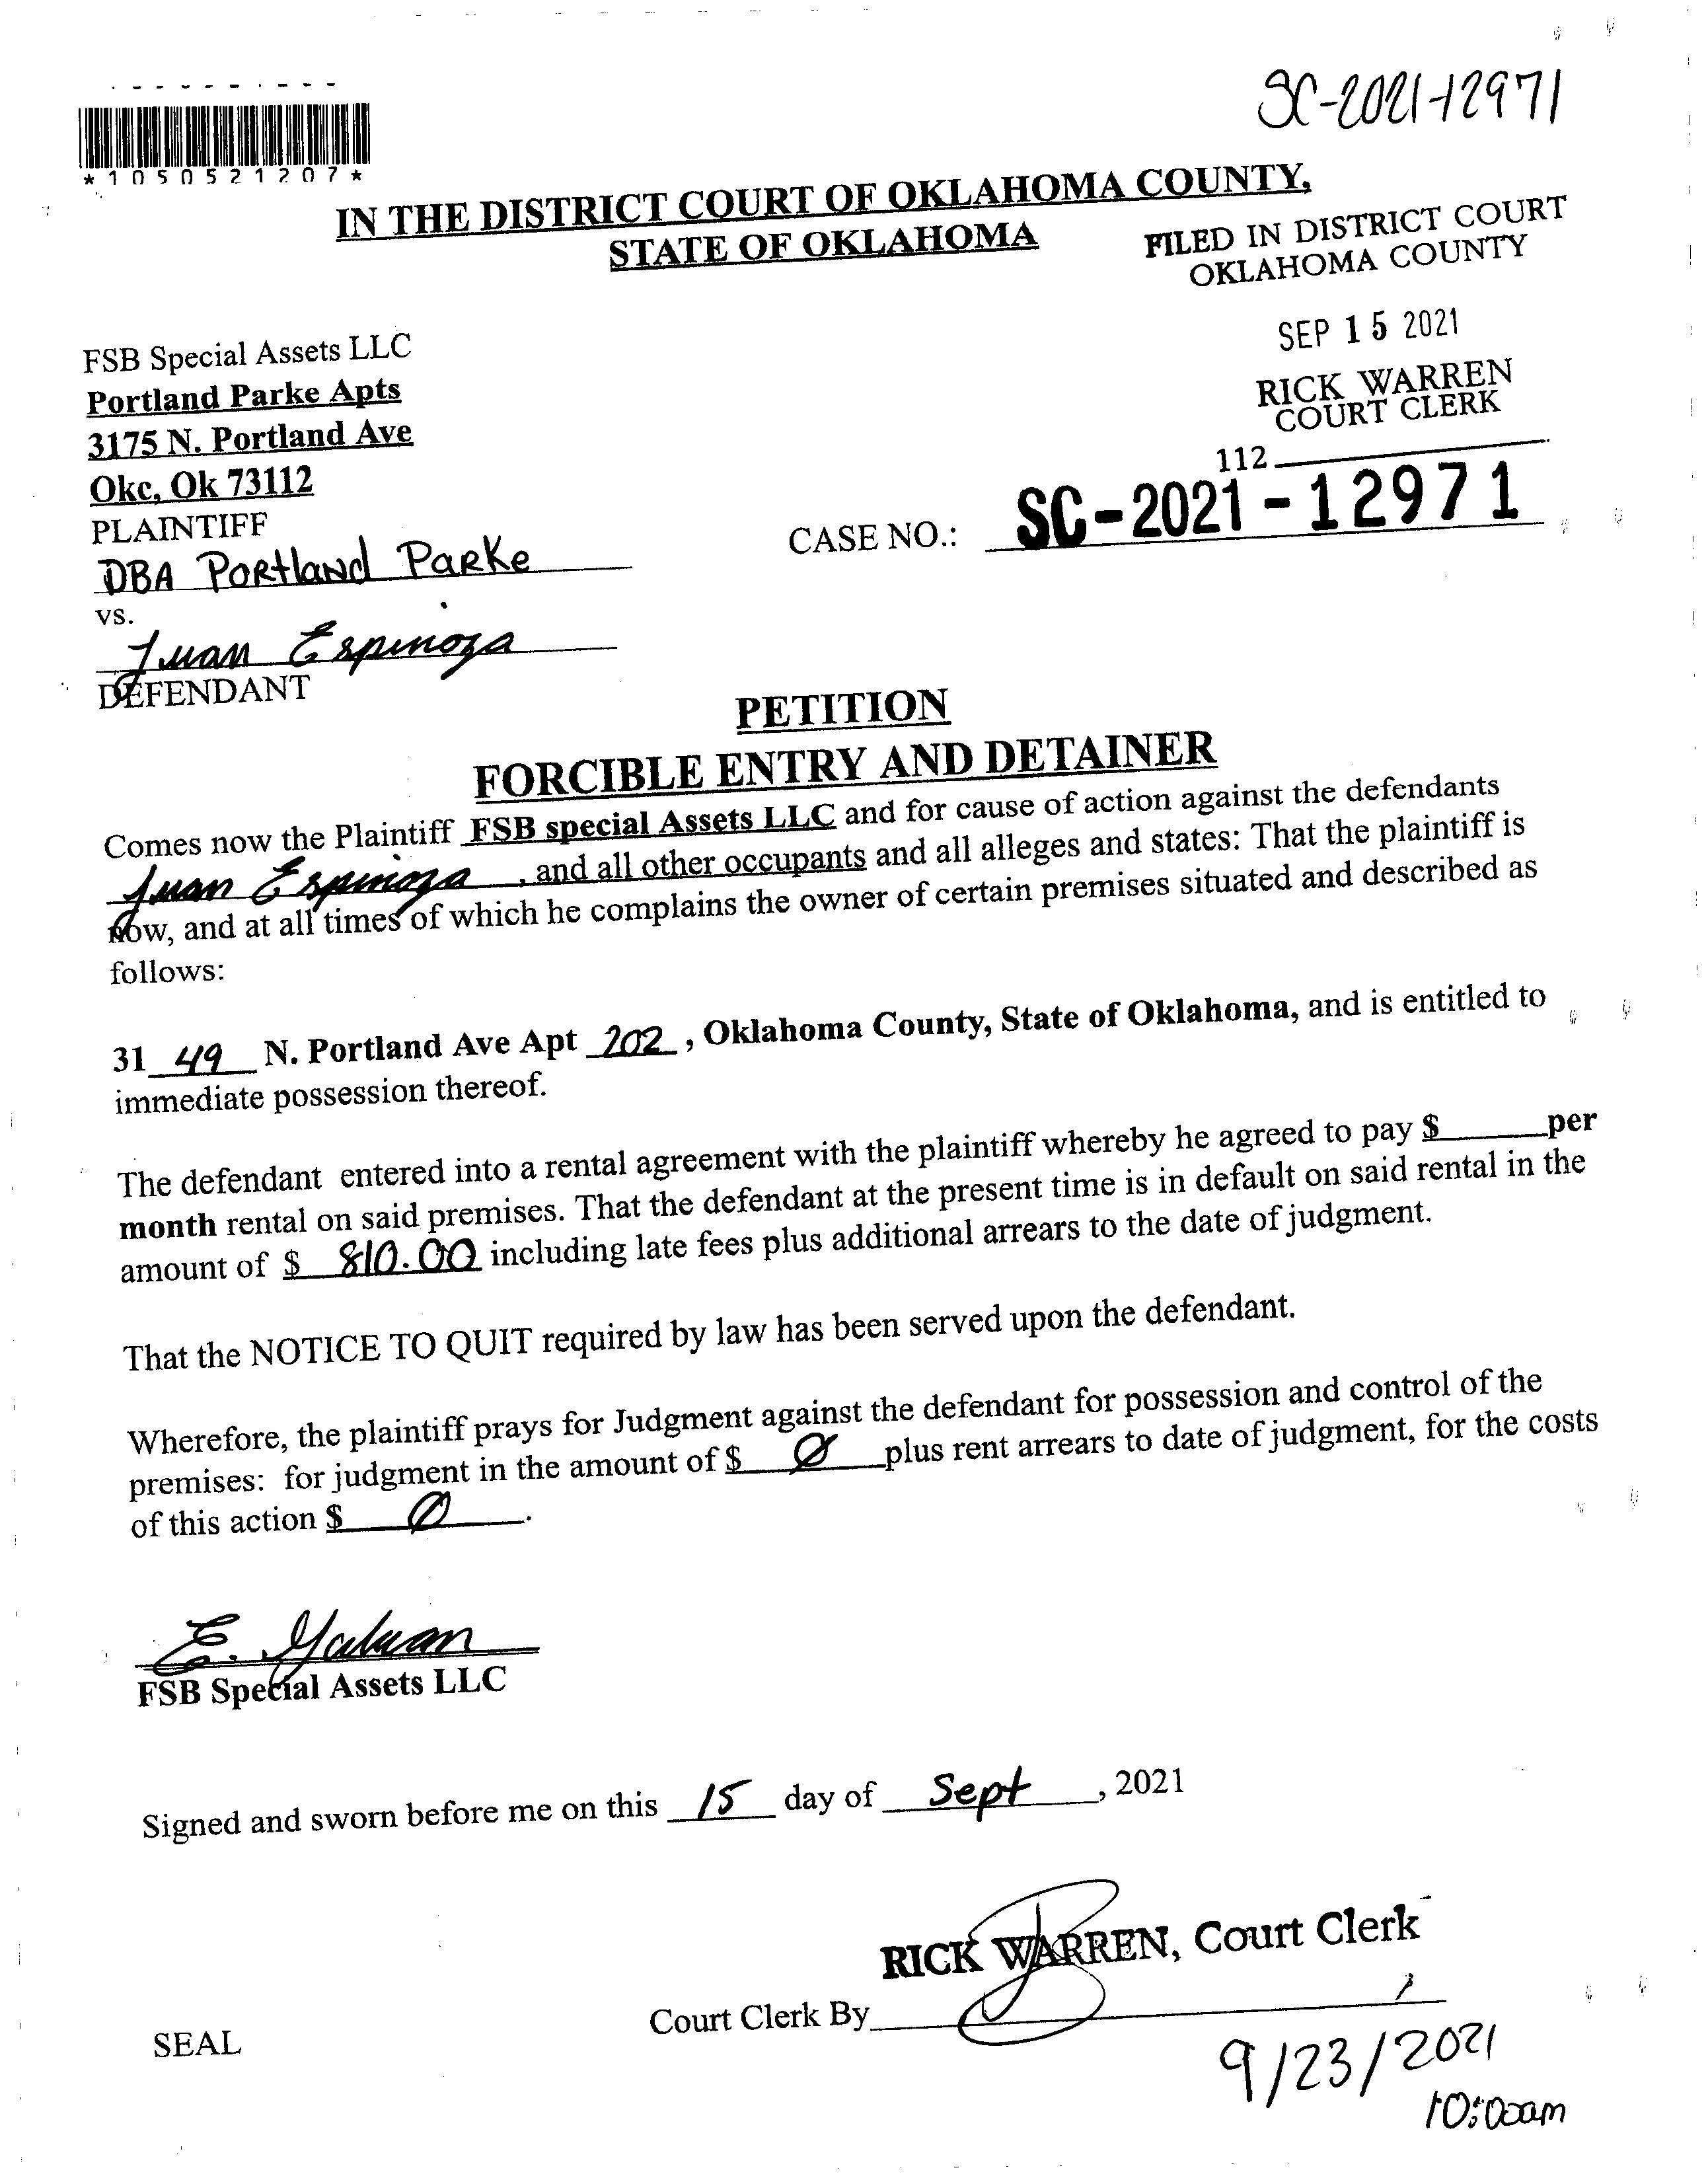 SC-2021-12971
*1050521207*
IN THE DISTRICT COURT OF OKLAHOMA COUNTY,
STATE OF OKLAHOMA
FILED IN DISTRICT COURT
OKLAHOMA COUNTY
SEP 15 2021
RICK WARREN
COURT CLERK
112
FSB Special Assets LLC
Portland Parke Apts
3175 N. Portland Ave
Okc, Ok 73112
PLAINTIFF
CASE NO.: SC-2021-12971
DBA Portland Parke
vs.
Juan Espinoza
DEFENDANT
PETITION
FORCIBLE ENTRY AND DETAINER
Comes now the Plaintiff FSB special Assets LLC and for cause of action against the defendants
Juan Espinoza, and all other occupants and all alleges and states: That the plaintiff is
now, and at all times of which he complains the owner of certain premises situated and described as
follows:
31 49 N. Portland Ave Apt 202, Oklahoma County, State of Oklahoma, and is entitled to
immediate possession thereof.
The defendant entered into a rental agreement with the plaintiff whereby he agreed to pay $______per
month rental on said premises. That the defendant at the present time is in default on said rental in the
amount of $ 810.00 including late fees plus additional arrears to the date of judgment.
That the NOTICE TO QUIT required by law has been served upon the defendant.
Wherefore, the plaintiff prays for Judgment against the defendant for possession and control of the
premises: for judgment in the amount of $ Ø plus rent arrears to date of judgment, for the costs
of this action $ Ø.
E. Galvan
FSB Special Assets LLC
Signed and sworn before me on this 15 day of Sept, 2021
RICK WARREN, Court Clerk
Court Clerk By
SEAL
9/23/2021
10:00am